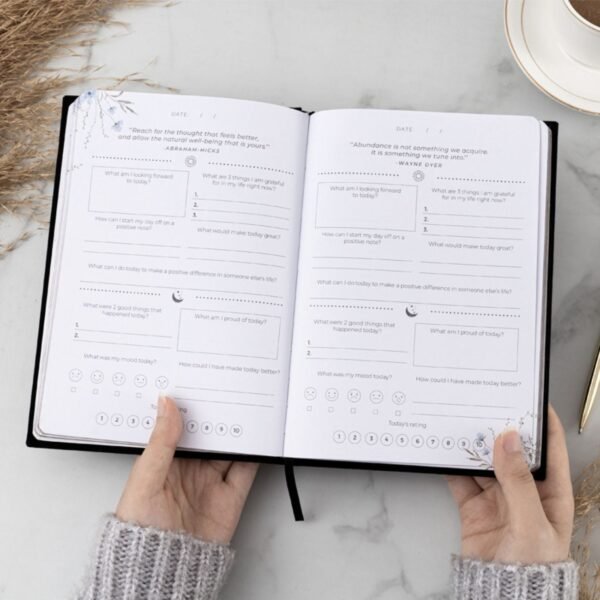 DATE: / /
"Reach for the thought that feels better,
and allow the natural well-being that is yours."
-ABRAHAM-HICKS
What am I looking forward
to today?
What are 3 things I am grateful
for in my life right now?
1.
2.
3.
How can I start my day off on a
positive note?
What would make today great?
What can I do today to make a positive difference in someone else's life?
What were 2 good things that
happened today?
1.
2.
What am I proud of today?
What was my mood today?
How could I have made today better?
Today's
1 2 3 4 7 8 9 10
DATE: / /
"Abundance is not something we acquire,
it is something we tune into."
-WAYNE DYER
What am I looking forward
to today?
What are 3 things I am grateful
for in my life right now?
1.
2.
3.
How can I start my day off on a
positive note?
What would make today great?
What can I do today to make a positive difference in someone else's life?
What were 2 good things that
happened today?
1.
2.
What am I proud of today?
What was my mood today?
How could I have made today better?
Today's rating
1 2 3 4 5 6 7 8 9 10